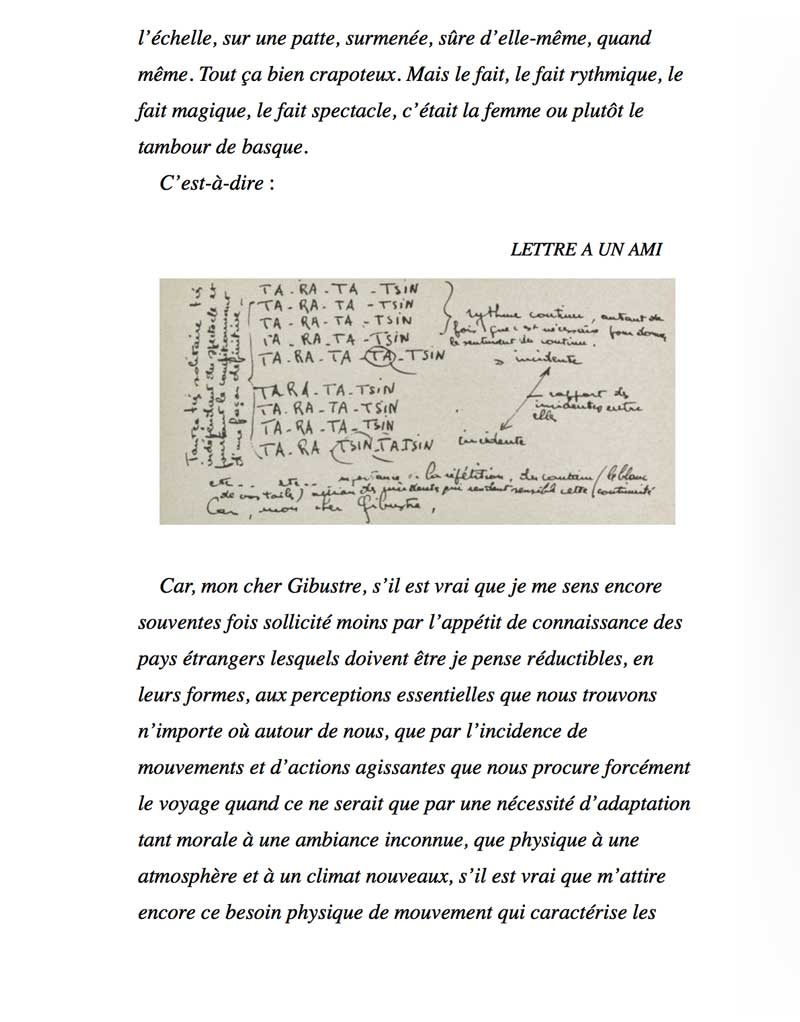 l’échelle, sur une patte, surmenée, sûre d’elle-même, quand
même. Tout ça bien crapoteux. Mais le fait, le fait rythmique, le
fait magique, le fait spectacle, c’était la femme ou plutôt le
tambour de basque.
C’est-à-dire :
LETTRE A UN AMI
TA - RA - TA - TSIN
TA - RA - TA - TSIN
TA - RA - TA - TSIN
TA - RA - TA - TSIN
TA - RA - TA - TA - TSIN
TARA - TA - TSIN
TA - RA - TA - TSIN
TA - RA - TA - TSIN
TA - RA TSIN - TATSIN
rythme continu, autant de
fois que c'est nécessaire pour donner
le sentiment du continu.
incidente
rapport des
incidentes entre
elles
incidente
indépendant du spectacle et
pourtant le conditionnant
d'une façon définitive -
etc... etc... importance la répétition, du continu / le blanc
de vos toiles) des incidents qui rendent sensible cette / continuité
Car, mon cher Gibustre,
Car, mon cher Gibustre, s’il est vrai que je me sens encore
souventes fois sollicité moins par l’appétit de connaissance des
pays étrangers lesquels doivent être je pense réductibles, en
leurs formes, aux perceptions essentielles que nous trouvons
n’importe où autour de nous, que par l’incidence de
mouvements et d’actions agissantes que nous procure forcément
le voyage quand ce ne serait que par une nécessité d’adaptation
tant morale à une ambiance inconnue, que physique à une
atmosphère et à un climat nouveaux, s’il est vrai que m’attire
encore ce besoin physique de mouvement qui caractérise les